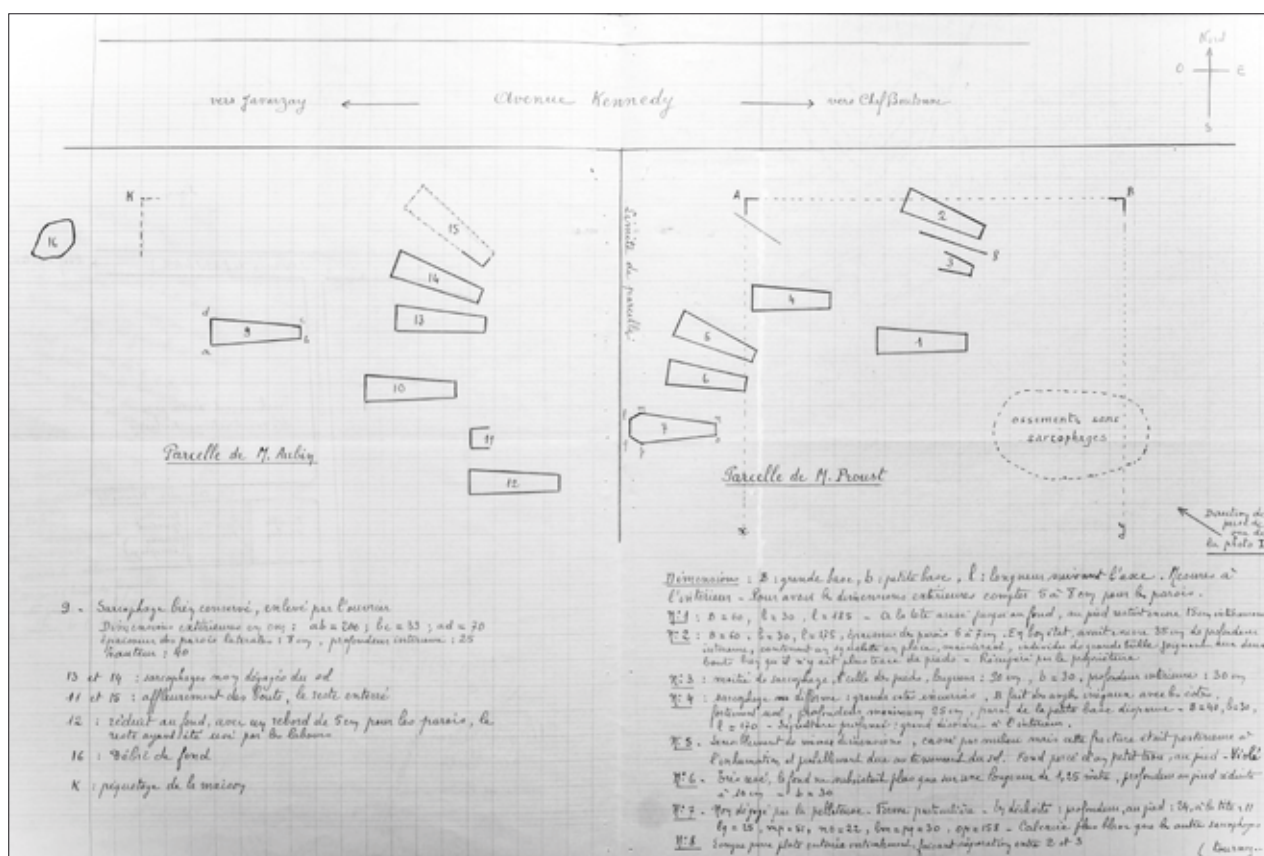 Nord
O E
S
vers Javarzay ← Avenue Kennedy → vers Chef Boutonne
K
A
B
16
15
14
13
d c
9
a b
10
11
12
Parcelle de M. Aubin
Limite de parcelle
2
8
3
4
1
5
6
7
ossements sans
sarcophages
Parcelle de M. Proust
x
y
la photo I
9 - Sarcophage bien conservé, enlevé par l'ouvreur
Dimensions extérieures en cm : ab = 200 ; bc = 33 ; ad = 70
épaisseur des parois latérales : 8 cm, profondeur interne : 25
Hauteur : 40
13 et 14 : sarcophages non dégagés du sol
11 et 15 : affleurement des bouts, le reste enterré
12 : réduit au fond, avec un rebord de 5 cm pour les parois, le
reste ayant été usé par les labours
16 : Débri de fond
K : piquetage de la maison
Dimensions : B : grande base, b : petite base, l : longueur suivant l'axe. Mesures à
l'intérieur - Pour avoir les dimensions extérieures compter 5 à 8 cm pour les parois.
N° 1 : B = 60, b = 30, l = 185 - à la tête jusqu'au fond, au pied restait encore 15 cm
N° 2 : B = 60, b = 30, l = 175, épaisseur de parois 6 à 7 cm. En bon état, avait encore 35 cm de profondeur
interne, contenant un squelette en place, individu de grande taille joignant aux deux
bouts bien qu'il n'y ait plus trace de pieds - Récupéré par le propriétaire
N° 3 : moitié de sarcophage, celle des pieds, longueur : 90 cm, b = 30, profondeur intérieure : 30 cm
N° 4 : sarcophage difforme : grands cotés incurvés, B fait des angles inégaux avec les cotés,
fortement usé, profondeur maximum 25 cm, paroi de la petite base disparue - B = 40, b = 30,
l = 170 - Sépulture profanée : grand désordre à l'intérieur.
N° 5 - Sensiblement de mêmes dimensions, cassé par milieu mais cette fracture était postérieure à
l'inhumation et due au tassement du sol. Fond percé d'un petit trou, au pied - Violé
N° 6 - Très usé, le fond ne subsistait plus que sur une longueur de 1,25 mètre, profondeur au pied réduite
à 10 cm - b = 30
N° 7 - Non dégagé par la pelleteuse - Forme particulière - profondeur, au pied : 24, à la tête : 11
mp = 51, no = 22, lm = pq = 30, op = 158 - Calcaire plus blanc que les autres sarcophages
N° 8 pierre plate enterrée verticalement, faisant séparation entre 2 et 3